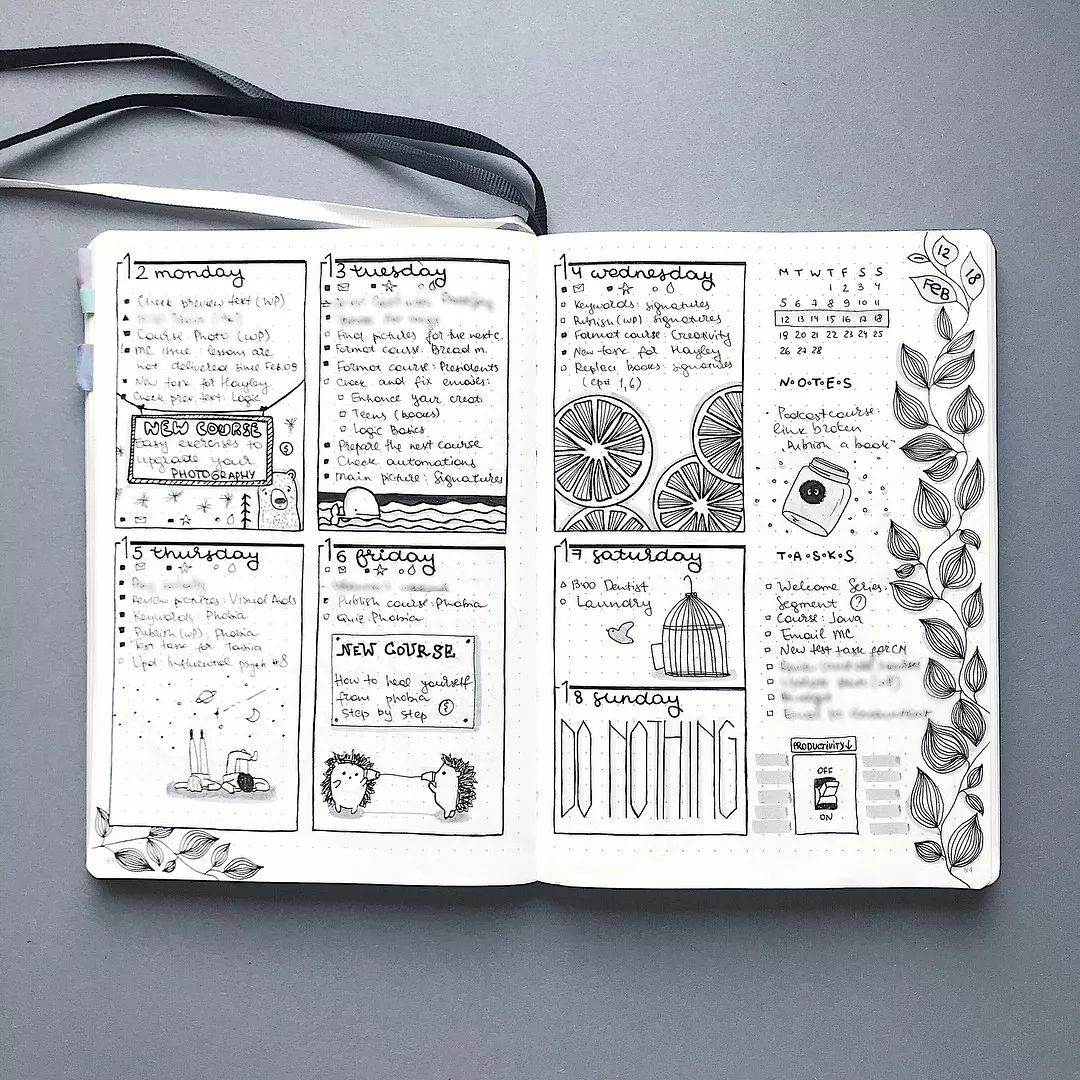 12 monday
Check preview text (WP)
Course Photo (WP)
MC issue: lessons are
not delivered since Feb.09
New task for Hayley
Check prev. text: Logic
NEW COURSE
Easy exercises to
upgrade your
PHOTOGRAPHY
$
13 tuesday
Final pictures for the next c.
Format course: Bread m.
Format course: Presidents
Check and fix emails:
Enhance your creat.
Teens (books)
Logic Basics
Prepare the next course
Check automations
Main picture: signatures
14 wednesday
Keywords: signatures
Publish (WP) signatures
Format course: Creativity
New task for Hayley
Replect books: signatures
(ep# 1,6)
15 thursday
Review pictures: Visual Aids
Keywords: Phobia
Publish (WP): Phobia
Test task for
Upd: Influential psych #8
16 friday
Publish course: Phobia
Quiz: Phobia
NEW COURSE
How to heal yourself
from phobia
step by step $
17 saturday
13:00 Dentist
Laundry
18 sunday
DO NOTHING
M T W T F S S
1 2 3 4
5 6 7 8 9 10 11
12 13 14 15 16 17 18
19 20 21 22 23 24 25
26 27 28
N•O•T•E•S
Podcast course:
link broken
"Publish a book"
T•A•S•K•S
Welcome Series:
Segment ?
Course: Java
Email MC
New test task for CM
PRODUCTIVITY↓
OFF
ON
12
18
FEB
84